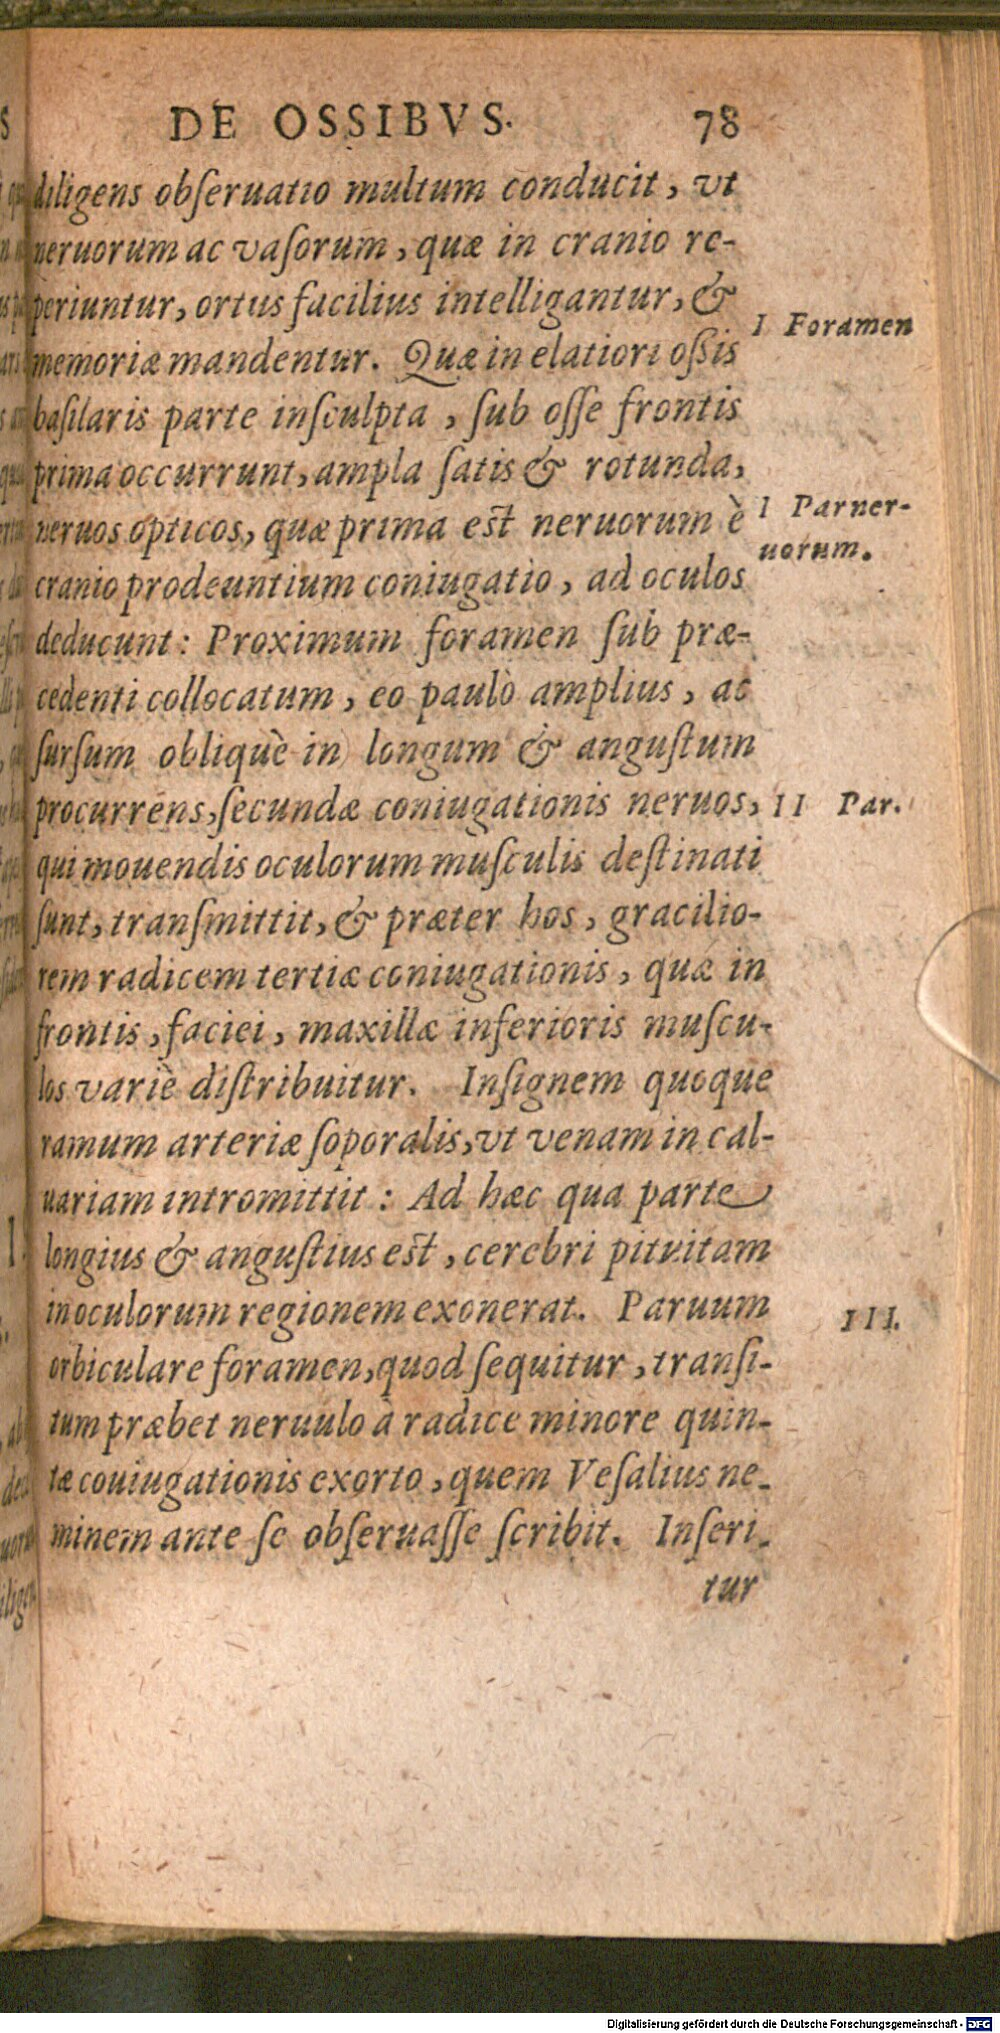 DE OSSIBVS. 78
diligens obſeruatio multum conducit, vt
neruorum ac vaſorum, quæ in cranio re-
periuntur, ortus facilius intelligantur, &
I Foramen
memoriæ mandentur. Quæ in elatiori oſsis
baſilaris parte inſculpta, ſub oſſe frontis
prima occurrunt, ampla ſatis & rotunda,
I Par ner-
neruos opticos, quæ prima eſt neruorum è
uorum.
cranio prodeuntium coniugatio, ad oculos
deducunt: Proximum foramen ſub præ-
cedenti collocatum, eo paulò amplius, ac
ſurſum obliquè in longum & anguſtum
procurrens, ſecundæ coniugationis neruos,
II Par.
qui mouendis oculorum muſculis deſtinati
ſunt, tranſmittit, & præter hos, gracilio-
rem radicem tertiæ coniugationis, quæ in
frontis, faciei, maxillæ inferioris muſcu-
los variè diſtribuitur. Inſignem quoque
ramum arteriæ ſoporalis, vt venam in cal-
uariam intromittit: Ad hæc qua parte
longius & anguſtius eſt, cerebri pituitam
in oculorum regionem exonerat. Paruum
III.
orbiculare foramen, quod ſequitur, tranſi-
tum præbet neruulo à radice minore quin-
tæ couiugationis exorto, quem Veſalius ne-
minem ante ſe obſeruaſſe ſcribit. Inſeri-
tur
Digitalisierung gefördert durch die Deutsche Forschungsgemeinschaft - DFG